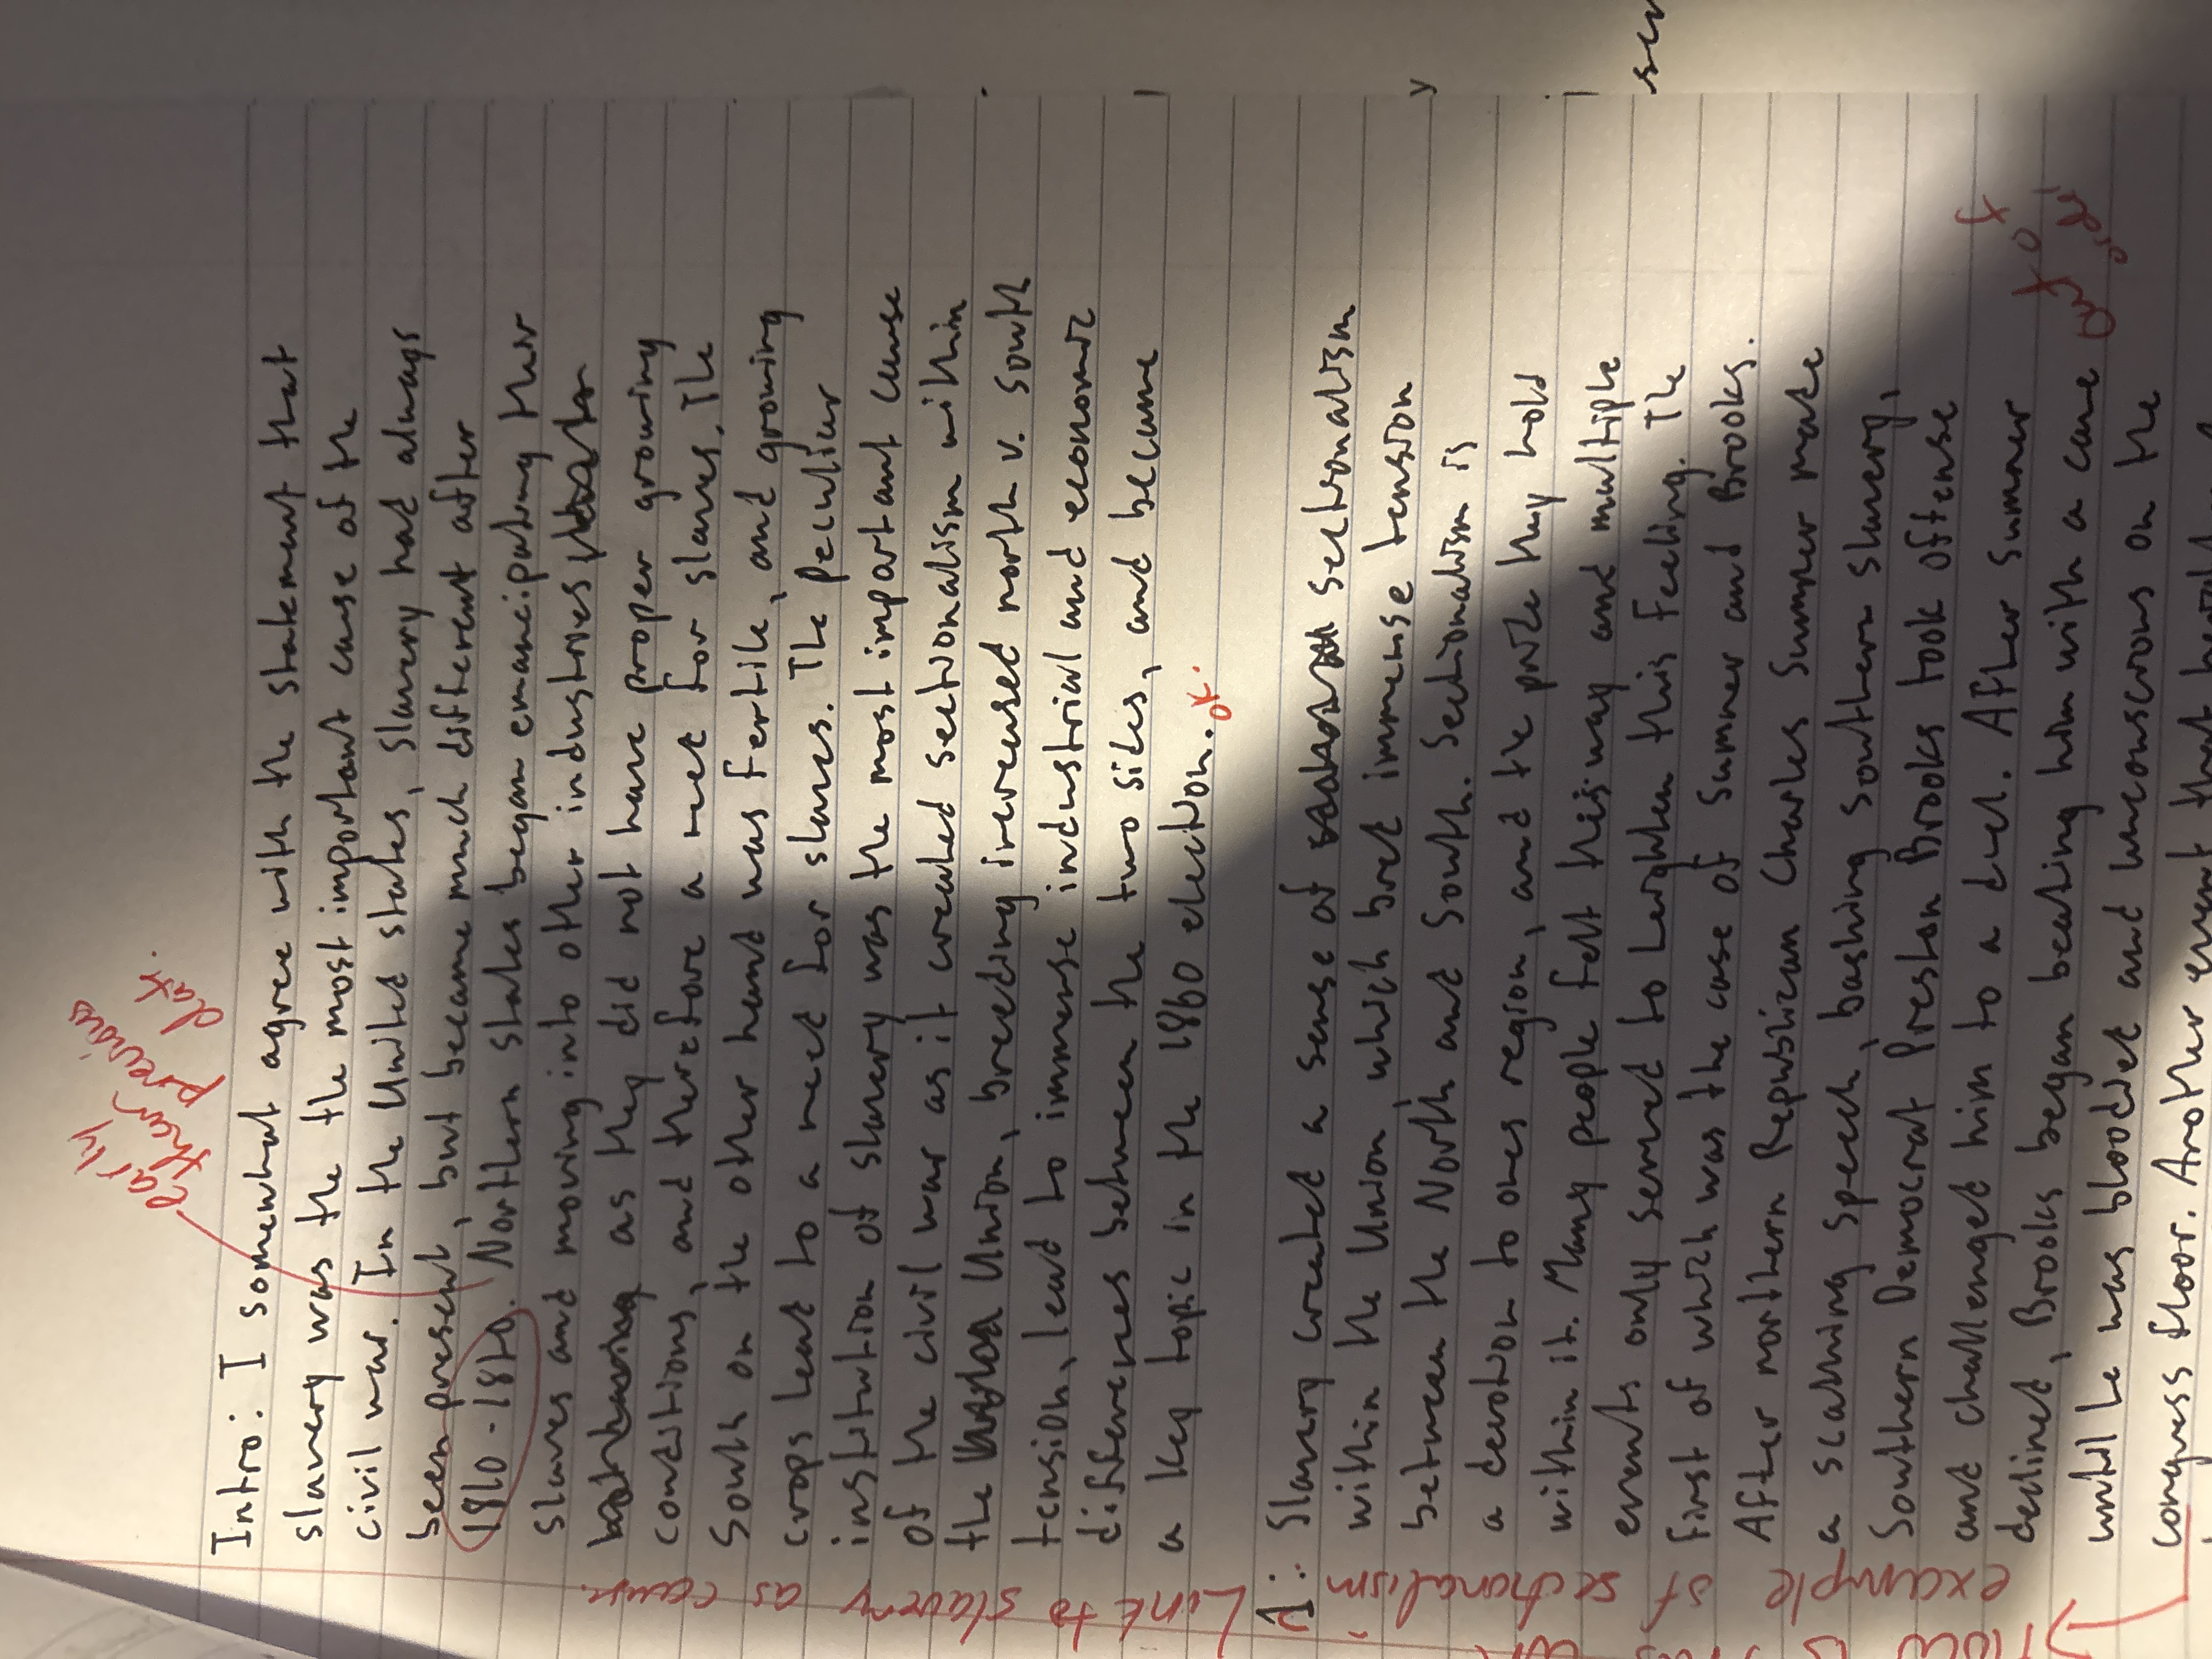 early
than
previous
date.
Intro: I somewhat agree with the statement that
slavery was the the most important cause of the
civil war. In the United states, slavery had always
been present, but became much different after
1810-1820. Northern states began emancipating their
slaves and moving into other industries
as they did not have proper growing
conditions, and therefore a need for slaves. The
South on the other hand was fertile, and growing
crops lead to a need for slaves. The Peculiar
institution of slavery was the most important cause
of the civil war as it created sectionalism within
the Union, breeding increased north v. south
tension, lead to immense industrial and economic
differences between the two sides, and became
a key topic in the 1860 election. ok.
1: Slavery created a sense of sectionalism
within the Union which bred immense tension
between the North and South. Sectionalism is
a devotion to ones region, and the pride they hold
within it. Many people felt this way and multiple
events only served to heighten this feeling. The
first of which was the case of Sumner and Brooks.
After northern Republican Charles Sumner made
a scathing speech, bashing southern slavery,
Southern Democrat Preston Brooks took offense
and challenged him to a duel. After sumner
declined, Brooks began beating him with a cane
until he was bloodied and unconscious on the
congress floor. Another event that
How is this an
example of sectionalism?
Link to slavery as cause.